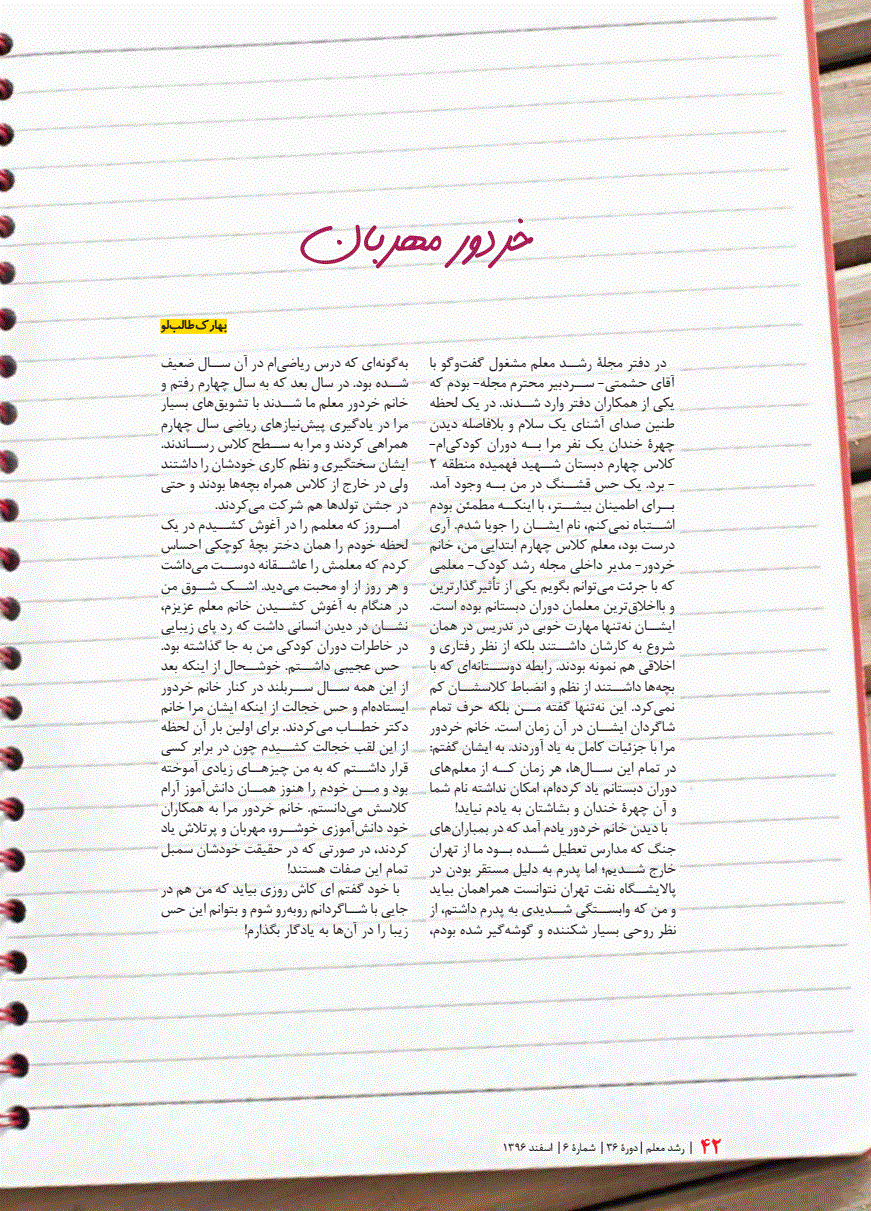 خردور مهربان
بهارک طالب‌لو
در دفتر مجلهٔ رشد معلم مشغول گفت‌وگو با
آقای حشمتی- سردبیر محترم مجله- بودم که
یکی از همکاران دفتر وارد شدند. در یک لحظه
طنین صدای آشنای یک سلام و بلافاصله دیدن
چهرهٔ خندان یک نفر مرا به دوران کودکی‌ام-
کلاس چهارم دبستان شهید فهمیده منطقه ۲
- برد. یک حس قشنگ در من به وجود آمد.
برای اطمینان بیشتر، با اینکه مطمئن بودم
اشتباه نمی‌کنم، نام ایشان را جویا شدم. آری
درست بود، معلم کلاس چهارم ابتدایی من، خانم
خردور- مدیر داخلی مجله رشد کودک- معلمی
که با جرئت می‌توانم بگویم یکی از تأثیرگذارترین
و بااخلاق‌ترین معلمان دوران دبستانم بوده است.
ایشان نه‌تنها مهارت خوبی در تدریس در همان
شروع به کارشان داشتند بلکه از نظر رفتاری و
اخلاقی هم نمونه بودند. رابطه دوستانه‌ای که با
بچه‌ها داشتند از نظم و انضباط کلاسشان کم
نمی‌کرد. این نه‌تنها گفته من بلکه حرف تمام
شاگردان ایشان در آن زمان است. خانم خردور
مرا با جزئیات کامل به یاد آوردند. به ایشان گفتم:
در تمام این سال‌ها، هر زمان که از معلم‌های
دوران دبستانم یاد کرده‌ام، امکان نداشته نام شما
و آن چهرهٔ خندان و بشاشتان به یادم نیاید!
با دیدن خانم خردور یادم آمد که در بمباران‌های
جنگ که مدارس تعطیل شده بود ما از تهران
خارج شدیم؛ اما پدرم به دلیل مستقر بودن در
پالایشگاه نفت تهران نتوانست همراهمان بیاید
و من که وابستگی شدیدی به پدرم داشتم، از
نظر روحی بسیار شکننده و گوشه‌گیر شده بودم،
به‌گونه‌ای که درس ریاضی‌ام در آن سال ضعیف
شده بود. در سال بعد که به سال چهارم رفتم و
خانم خردور معلم ما شدند با تشویق‌های بسیار
مرا در یادگیری پیش‌نیازهای ریاضی سال چهارم
همراهی کردند و مرا به سطح کلاس رساندند.
ایشان سختگیری و نظم کاری خودشان را داشتند
ولی در خارج از کلاس همراه بچه‌ها بودند و حتی
در جشن تولدها هم شرکت می‌کردند.
امروز که معلمم را در آغوش کشیدم در یک
لحظه خودم را همان دختر بچهٔ کوچکی احساس
کردم که معلمش را عاشقانه دوست می‌داشت
و هر روز از او محبت می‌دید. اشک شوق من
در هنگام به آغوش کشیدن خانم معلم عزیزم،
نشان در دیدن انسانی داشت که رد پای زیبایی
در خاطرات دوران کودکی من به جا گذاشته بود.
حس عجیبی داشتم. خوشحال از اینکه بعد
از این همه سال سربلند در کنار خانم خردور
ایستاده‌ام و حس خجالت از اینکه ایشان مرا خانم
دکتر خطاب می‌کردند. برای اولین بار آن لحظه
از این لقب خجالت کشیدم چون در برابر کسی
قرار داشتم که به من چیزهای زیادی آموخته
بود و من خودم را هنوز همان دانش‌آموز آرام
کلاسش می‌دانستم. خانم خردور مرا به همکاران
خود دانش‌آموزی خوشرو، مهربان و پرتلاش یاد
کردند، در صورتی که در حقیقت خودشان سمبل
تمام این صفات هستند!
با خود گفتم ای کاش روزی بیاید که من هم در
جایی با شاگردانم روبه‌رو شوم و بتوانم این حس
زیبا را در آن‌ها به یادگار بگذارم!
۴۲ | رشد معلم | دورهٔ ۳۶ | شمارهٔ ۶ | اسفند ۱۳۹۶